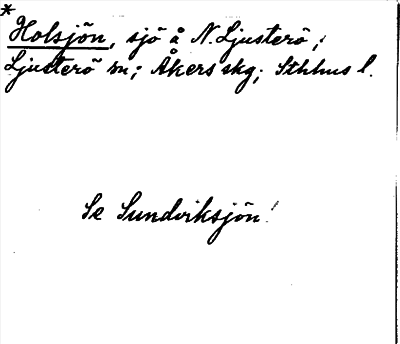 *
Holsjön, sjö å N. Ljusterö;
Ljusterö sn; Åkers skg; Sthlms l.
Se Sundviksjön!